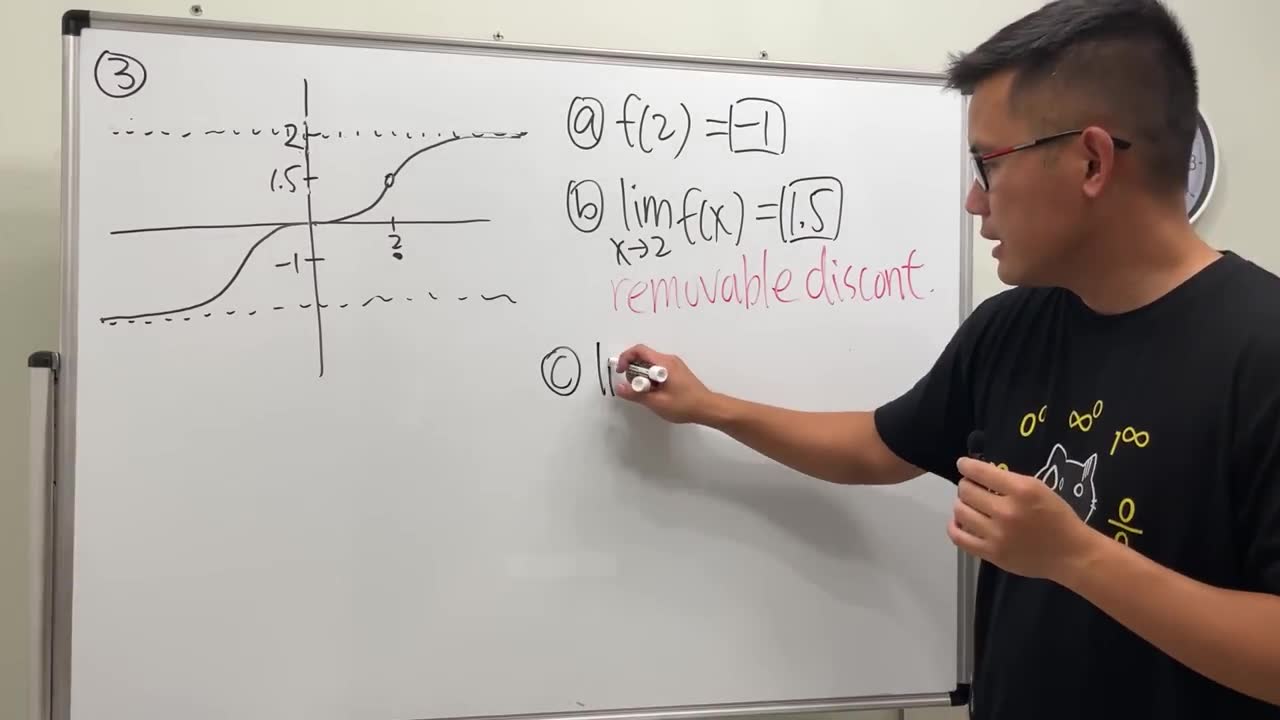 ③
2
1.5
2
-1
ⓐ f(2) = -1
ⓑ lim f(x) = 1.5
x→2
removable discont.
ⓒ li
0⁰ ∞⁰ 1^∞
0